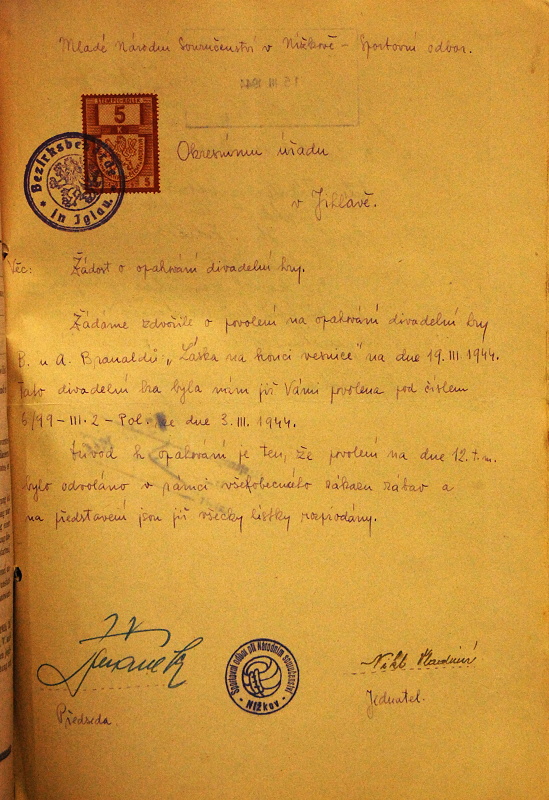 Mladé Národní Souručenství v Nížkově - Sportovní odbor.
15. III. 1944
STEMPEL-KOLEK
5
K
5
Bezirksbehörde in Iglau.
Okresnímu úřadu
v Jihlavě.
Věc: Žádost o opakování divadelní hry.
Žádáme zdvořile o povolení na opakování divadelní hry
B. u A. Branaldů: „Láska na konci vesnice" na dne 19. III 1944.
Tato divadelní hra byla nám již Vámi povolena pod číslem
6/99 - III. 2 - Pol. ze dne 3. III. 1944.
Důvod k opakování je ten, že povolení na dne 12. t.m.
bylo odvoláno v rámci všeobecného zákazu zábav a
na představení jsou již všecky lístky rozprodány.
Sportovní odbor při Národním souručenství
- Nížkov -
Předseda.
Jednatel.